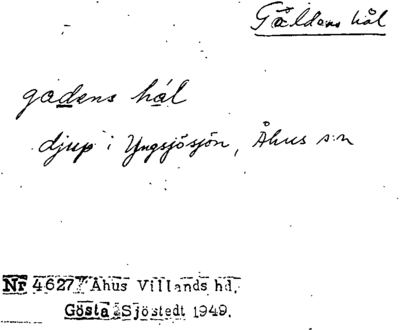 Gåldens hål
gadens hål
djup i Yngsjösjön, Åhus sn
Nr 4627 Åhus Villands hd.
Gösta Sjöstedt 1949.